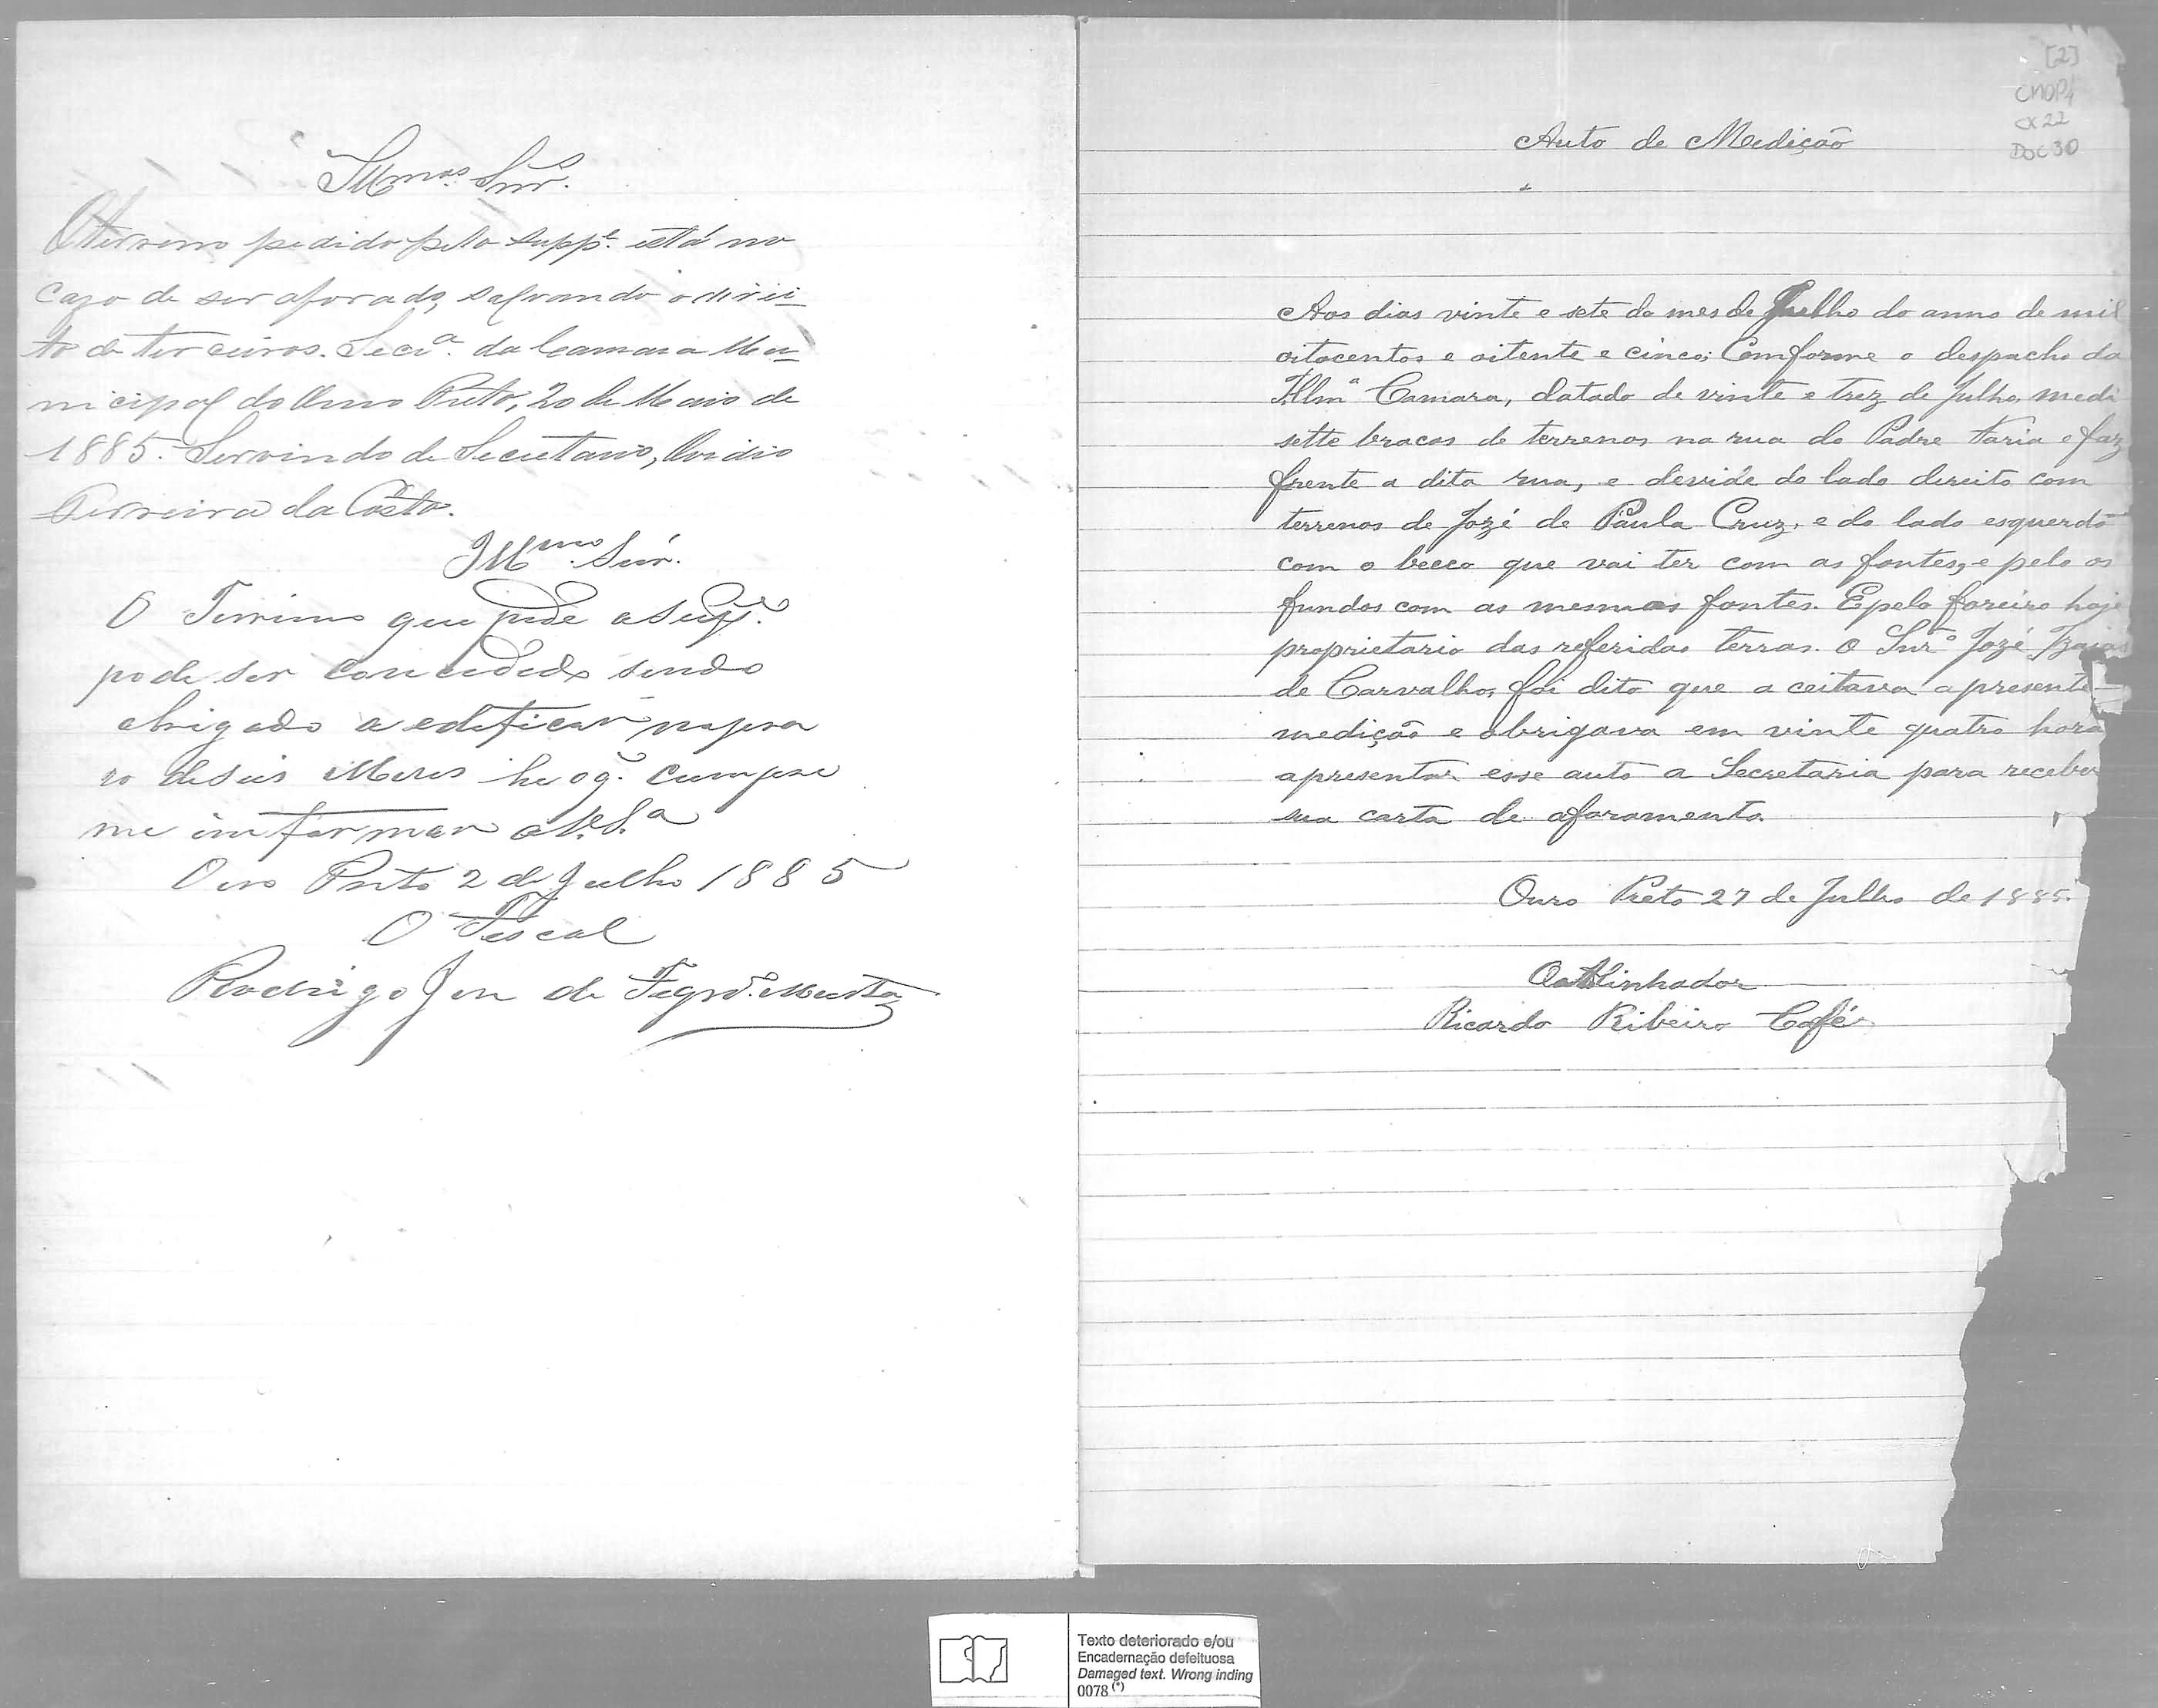 Illmos. Snr.
O terreno pedido pelo suppe. está no
cazo de ser aforado, salvando o direi-
to de terceiros. Secra. da Camara Mu-
nicipal do Ouro Preto, 20 de Maio de
1885. Servindo de Secretario, Ovidio
Ferreira da Costa.
Illmo. Snr.
O Terrino que pede a Supe.
pode ser concedido sendo
obrigado a edificar no pra
so de seis Meres he oq. cumpre
me imformar a V.S.a
Ouro Preto 2 de Julho 1885
O Fiscal
Rodrigo José de Figdo. Murta
[2]
CMOP/
CX 22
DOC 30
Auto de Medição
Aos dias vinte e sete do mes de Julho do anno de mil
oitocentos e oitente e cinco; Comforme o despacho da
Illmª Camara, datado de vinte e trez de Julho, medi
sette bracas de terrenos na rua do Padre Faria e faz
frente a dita rua, e devide do lado direito com
terrenos de Jozé de Paula Cruz, e do lado esquerdo
com o becco que vai ter com as fontes, e pelo os
fundos com as mesmas fontes. E pelo foreiro hoje
proprietario das referidas terras. O Snrº Jozé Izaias
de Carvalho, foi dito que a ceitava a presente
medição e obrigava em vinte quatro hora
apresentar esse auto a Secretaria para receber
sua carta de aforamento.
Ouro Preto 27 de Julho de 1885.
O Alinhador
Ricardo Ribeiro Café
Texto deteriorado e/ou
Encadernação defeituosa
Damaged text. Wrong inding
0078 (*)